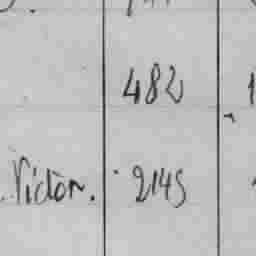 482
Victor. 2145